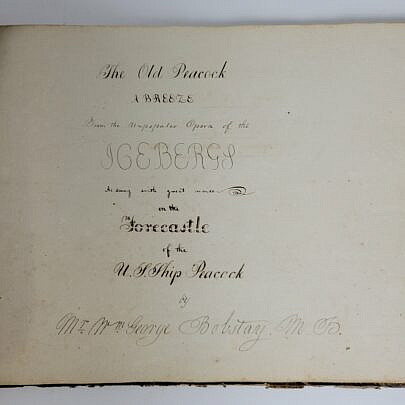 The Old Peacock
A BREEZE
From the Unpopular Opera of the
ICEBERGS
As sung with great
on the
Forecastle
of the
U.S. Ship Peacock
By
Mr. Wm. George Bobstay, M.D.